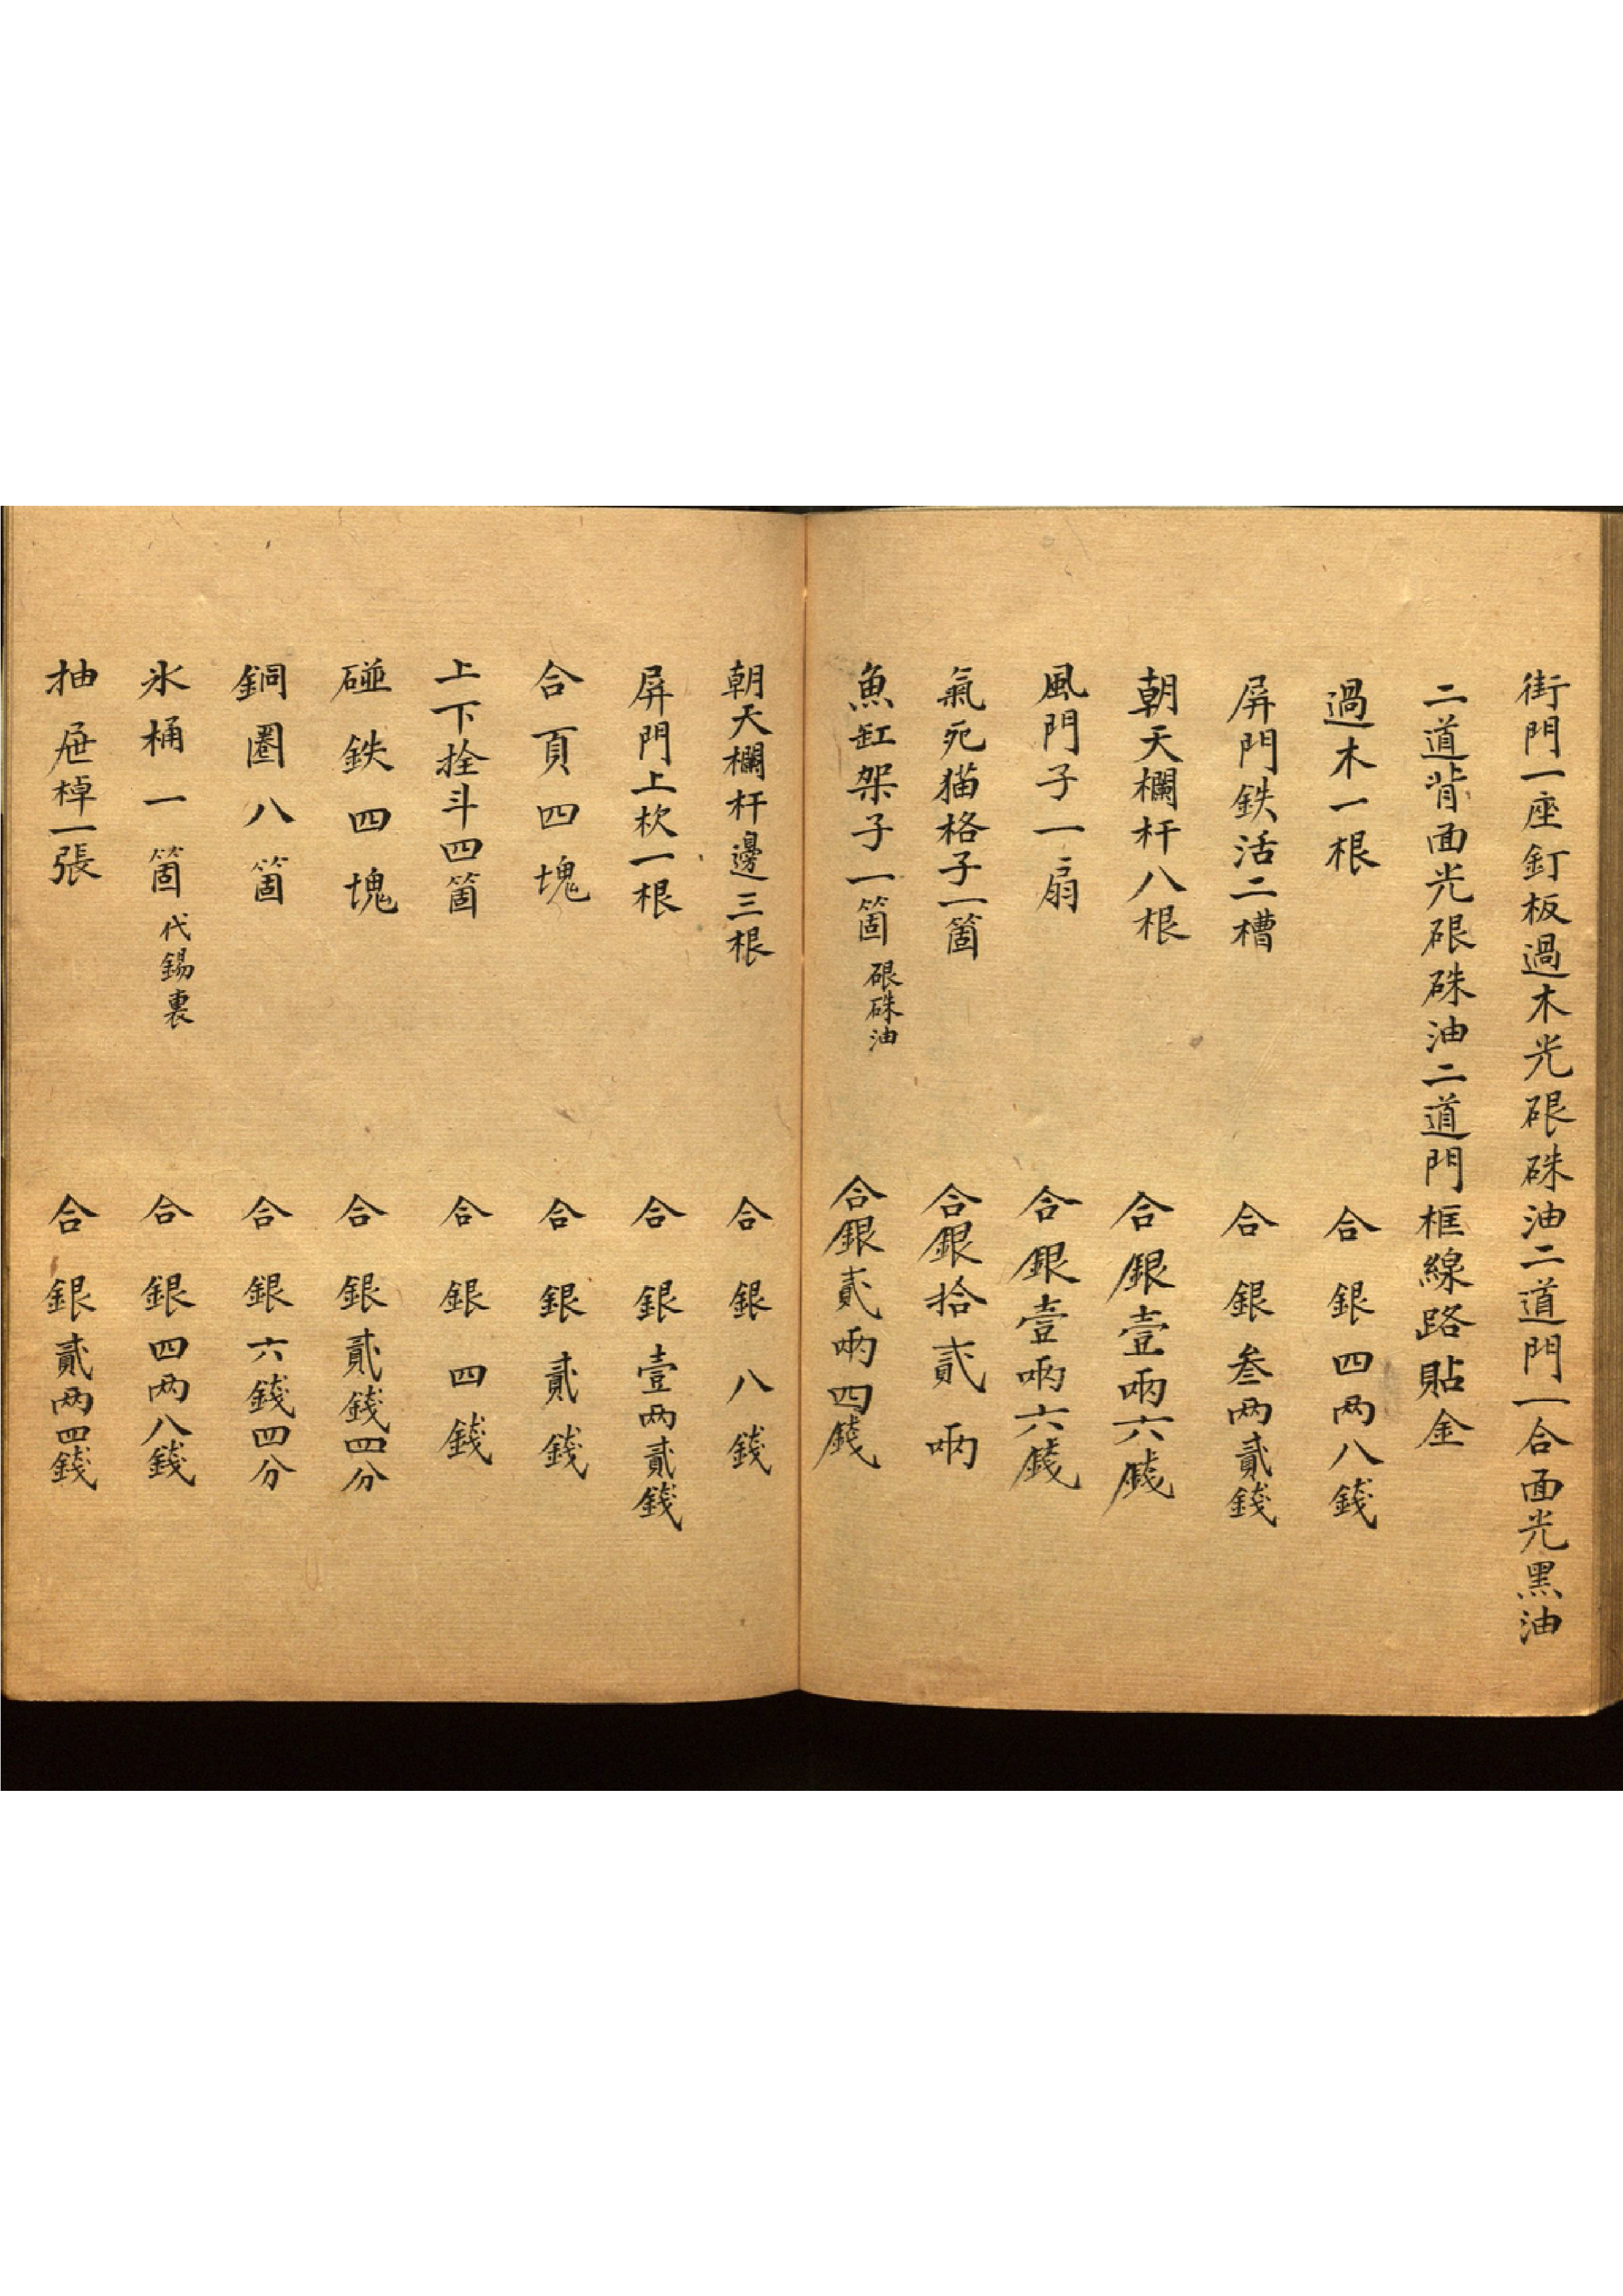 街門一座釘板過木光硍硃油二道門一合面光黑油
二道背面光硍硃油二道門框線路貼金
過木一根 合銀四两八錢
屏門鉄活二槽 合銀叁两貳錢
朝天欄杆八根 合銀壹啢六錢
風門子一扇 合銀壹啢六錢
氣死猫格子一箇 合銀拾貳啢
魚缸架子一箇 硍硃油 合銀貳啢四錢
朝天欄杆邊三根 合銀八錢
屏門上杴一根 合銀壹两貳錢
合頁四塊 合銀貳錢
上下拴斗四箇 合銀四錢
碰鉄四塊 合銀貳錢四分
銅圈八箇 合銀六錢四分
氷桶一箇 代錫裏 合銀四两八錢
抽屉棹一張 合銀貳两四錢